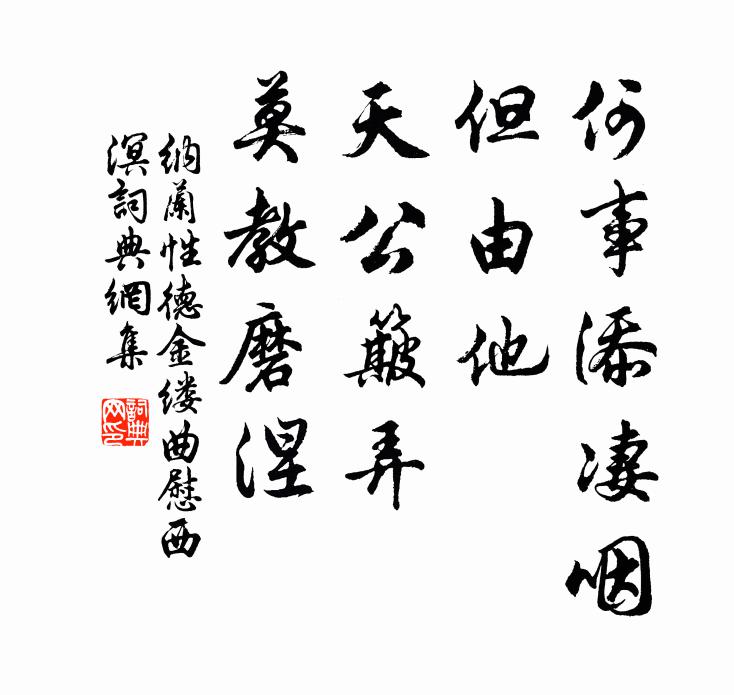 何事添凄咽
但由他
天公簸弄
莫教磨涅
纳蘭性德金缕曲慰西
溟詞典網集
詞典
网印